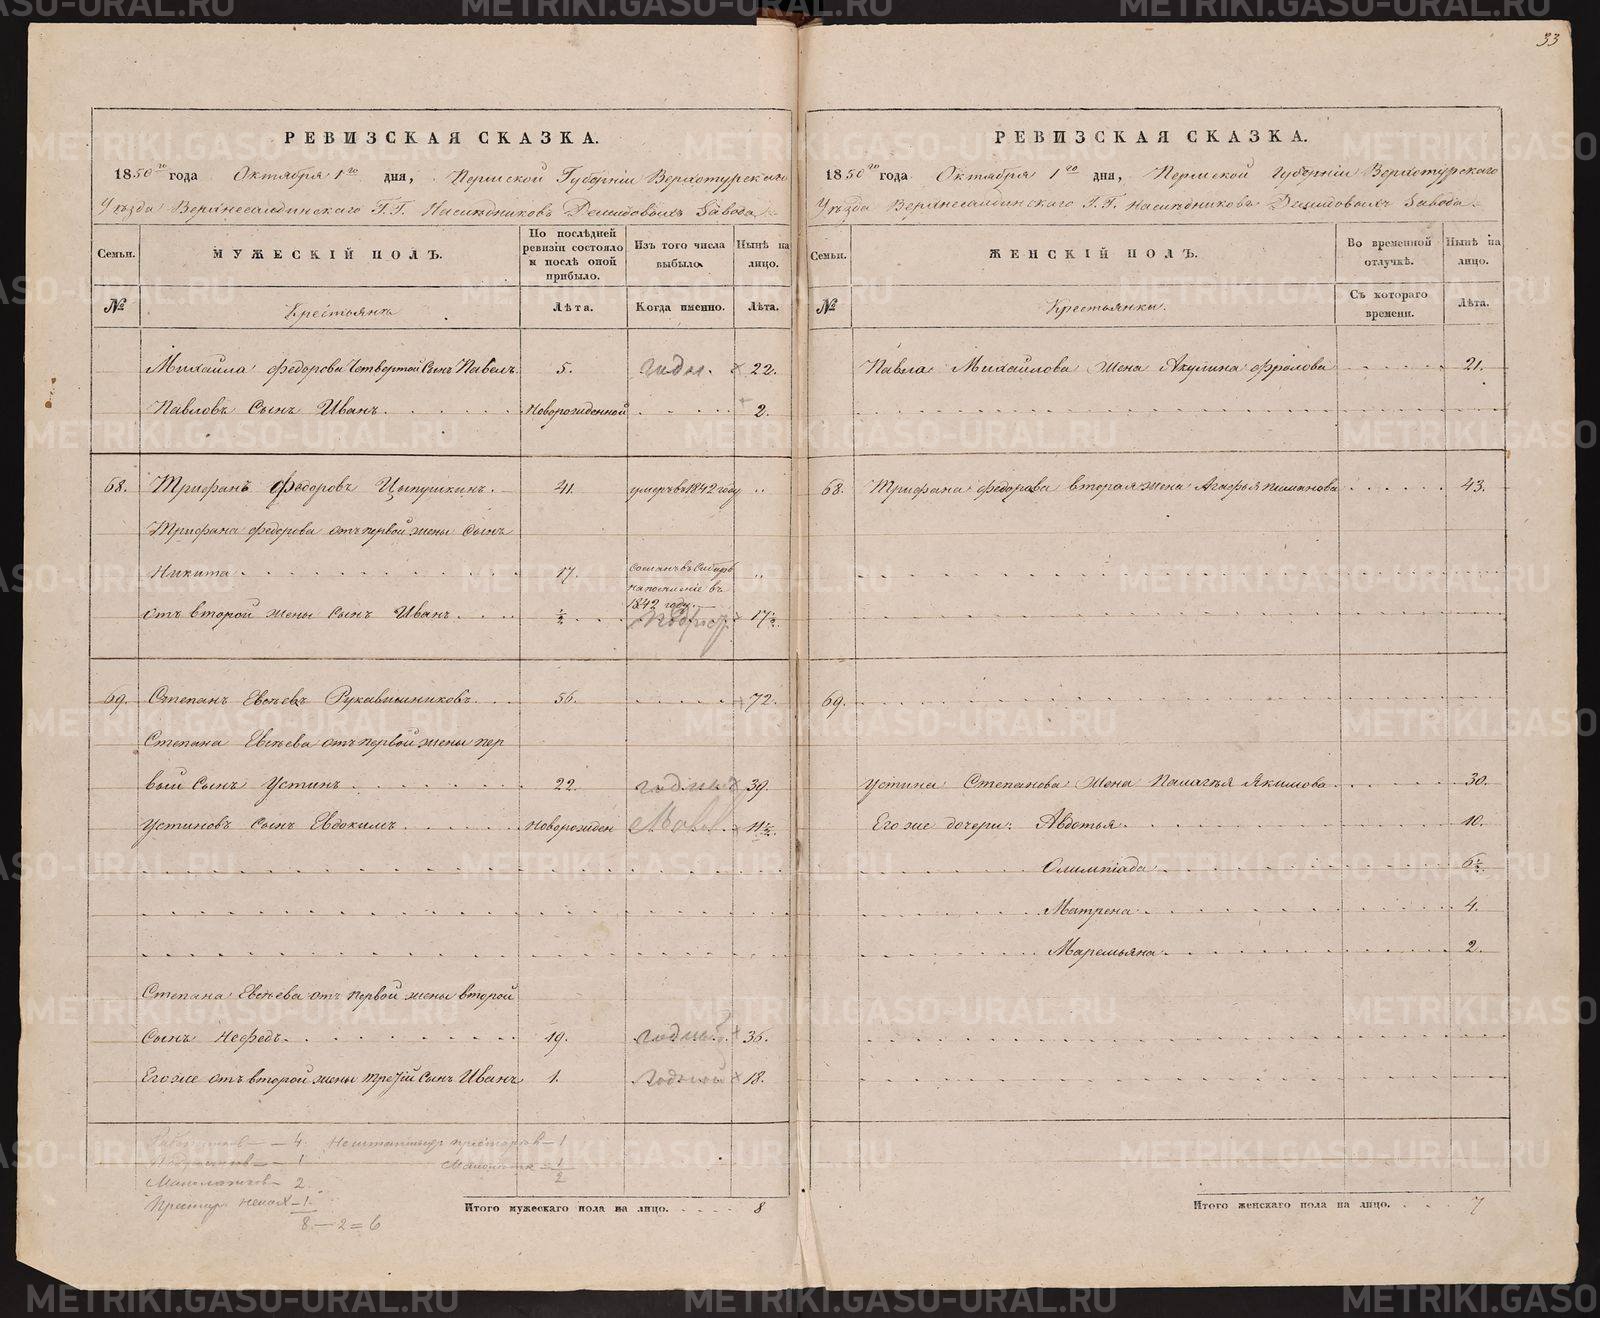 33
РЕВИЗСКАЯ СКАЗКА.
1850го года Октября 1го дня, Пермской Губерніи Верхотурскаго
Уѣзда Верхнесалдинскаго Г.Г. Наслѣдниковъ Демидовыхъ Завода
Семьи. МУЖЕСКІЙ ПОЛЪ. По послѣдней ревизіи состояло и послѣ оной прибыло. Изъ того числа выбыло. Нынѣ на лицо.
№ Крестьянъ Лѣта. Когда именно. Лѣта.
Михайла Федорова Четвертой Сынъ Павелъ 5. годн. 22.
Павловъ Сынъ Иванъ Новорожденной 2.
68. Трифанъ Федоровъ Цыпушкинъ. 41. умеръ въ 1842 году "
Трифана Федорова отъ первой жены Сынъ
Никита 17. Сосланъ въ Сибирь на поселніе въ 1842 году. "
отъ второй жены Сынъ Иванъ ½ 17½
69. Степанъ Евсѣевъ Рукавишниковъ. 56. 72.
Степана Евсѣева отъ первой жены пер
вый Сынъ Устинъ 22. годный 39.
Устиновъ Сынъ Евдокимъ Новорожден 11½
Степана Евсѣева отъ первой жены второй
Сынъ Нефедъ 19. годный 36.
Его же отъ второй жены третій Сынъ Иванъ 1. годной 18.
4.
1
2
1
8 — 2 = 6
1
1
2
Итого мужескаго пола на лицо. 8
РЕВИЗСКАЯ СКАЗКА.
1850го года Октября 1го дня, Пермской Губерніи Верхотурскаго
Уѣзда Верхнесалдинскаго Г.Г. Наслѣдниковъ Демидовыхъ Завода
Семьи. ЖЕНСКІЙ ПОЛЪ. Во временной отлучкѣ. Нынѣ на лицо.
№ Крестьянки. Съ котораго времени. Лѣта.
Павла Михайлова жена Акулина Фролова 21.
68. Трифана Федорова вторая жена Агафья Пиманова 43.
69.
Устина Степанова жена Палагѣя Якимова 30.
Его же дочери: Авдотья 10.
Олимпіада 6½
Матрена 4.
Маремьяна 2.
Итого женскаго пола на лицо. 7
METRIKI.GASO-URAL.RU